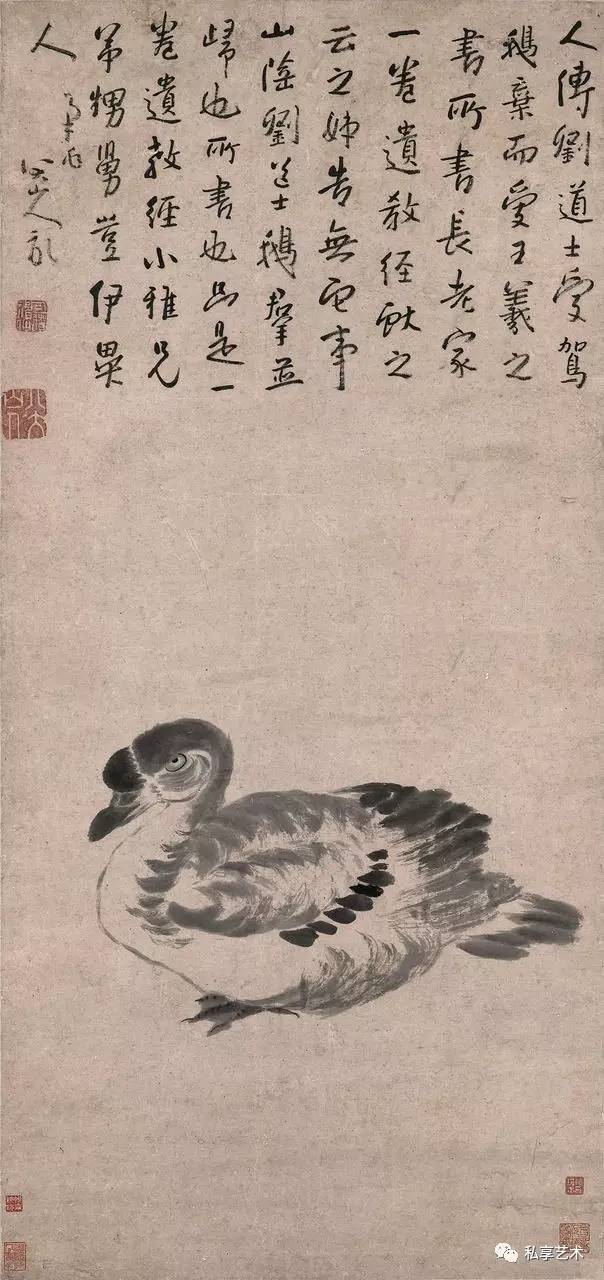 人傳劉道士愛駕
鵝棄而愛王羲之
書所書長老家
一卷遺教經獻之
云之姊告無它事
山陰劉道士鵝羣並
歸也所書也只是一
卷遺教經小雅兄
弟甥舅豈伊異
人
八大山人記
私享艺术